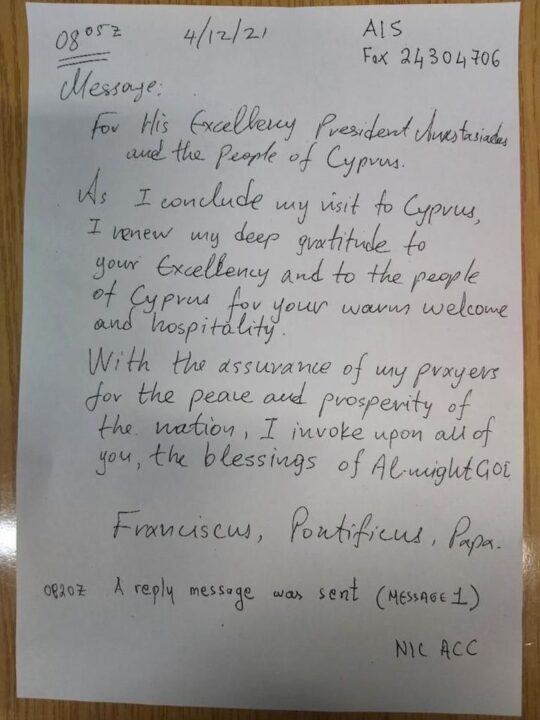 08 05Z 4/12/21 AIS
Fax 24304706
Message:
For His Excellency President Anastasiades
and the People of Cyprus.
As I conclude my visit to Cyprus,
I renew my deep gratitude to
your Excellency and to the people
of Cyprus for your warm welcome
and hospitality.
With the assurance of my prayers
for the peace and prosperity of
the nation, I invoke upon all of
you, the blessings of Al-might GOD
Franciscus, Pontificus, Papa.
0820Z A reply message was sent (MESSAGE 1)
NIC ACC